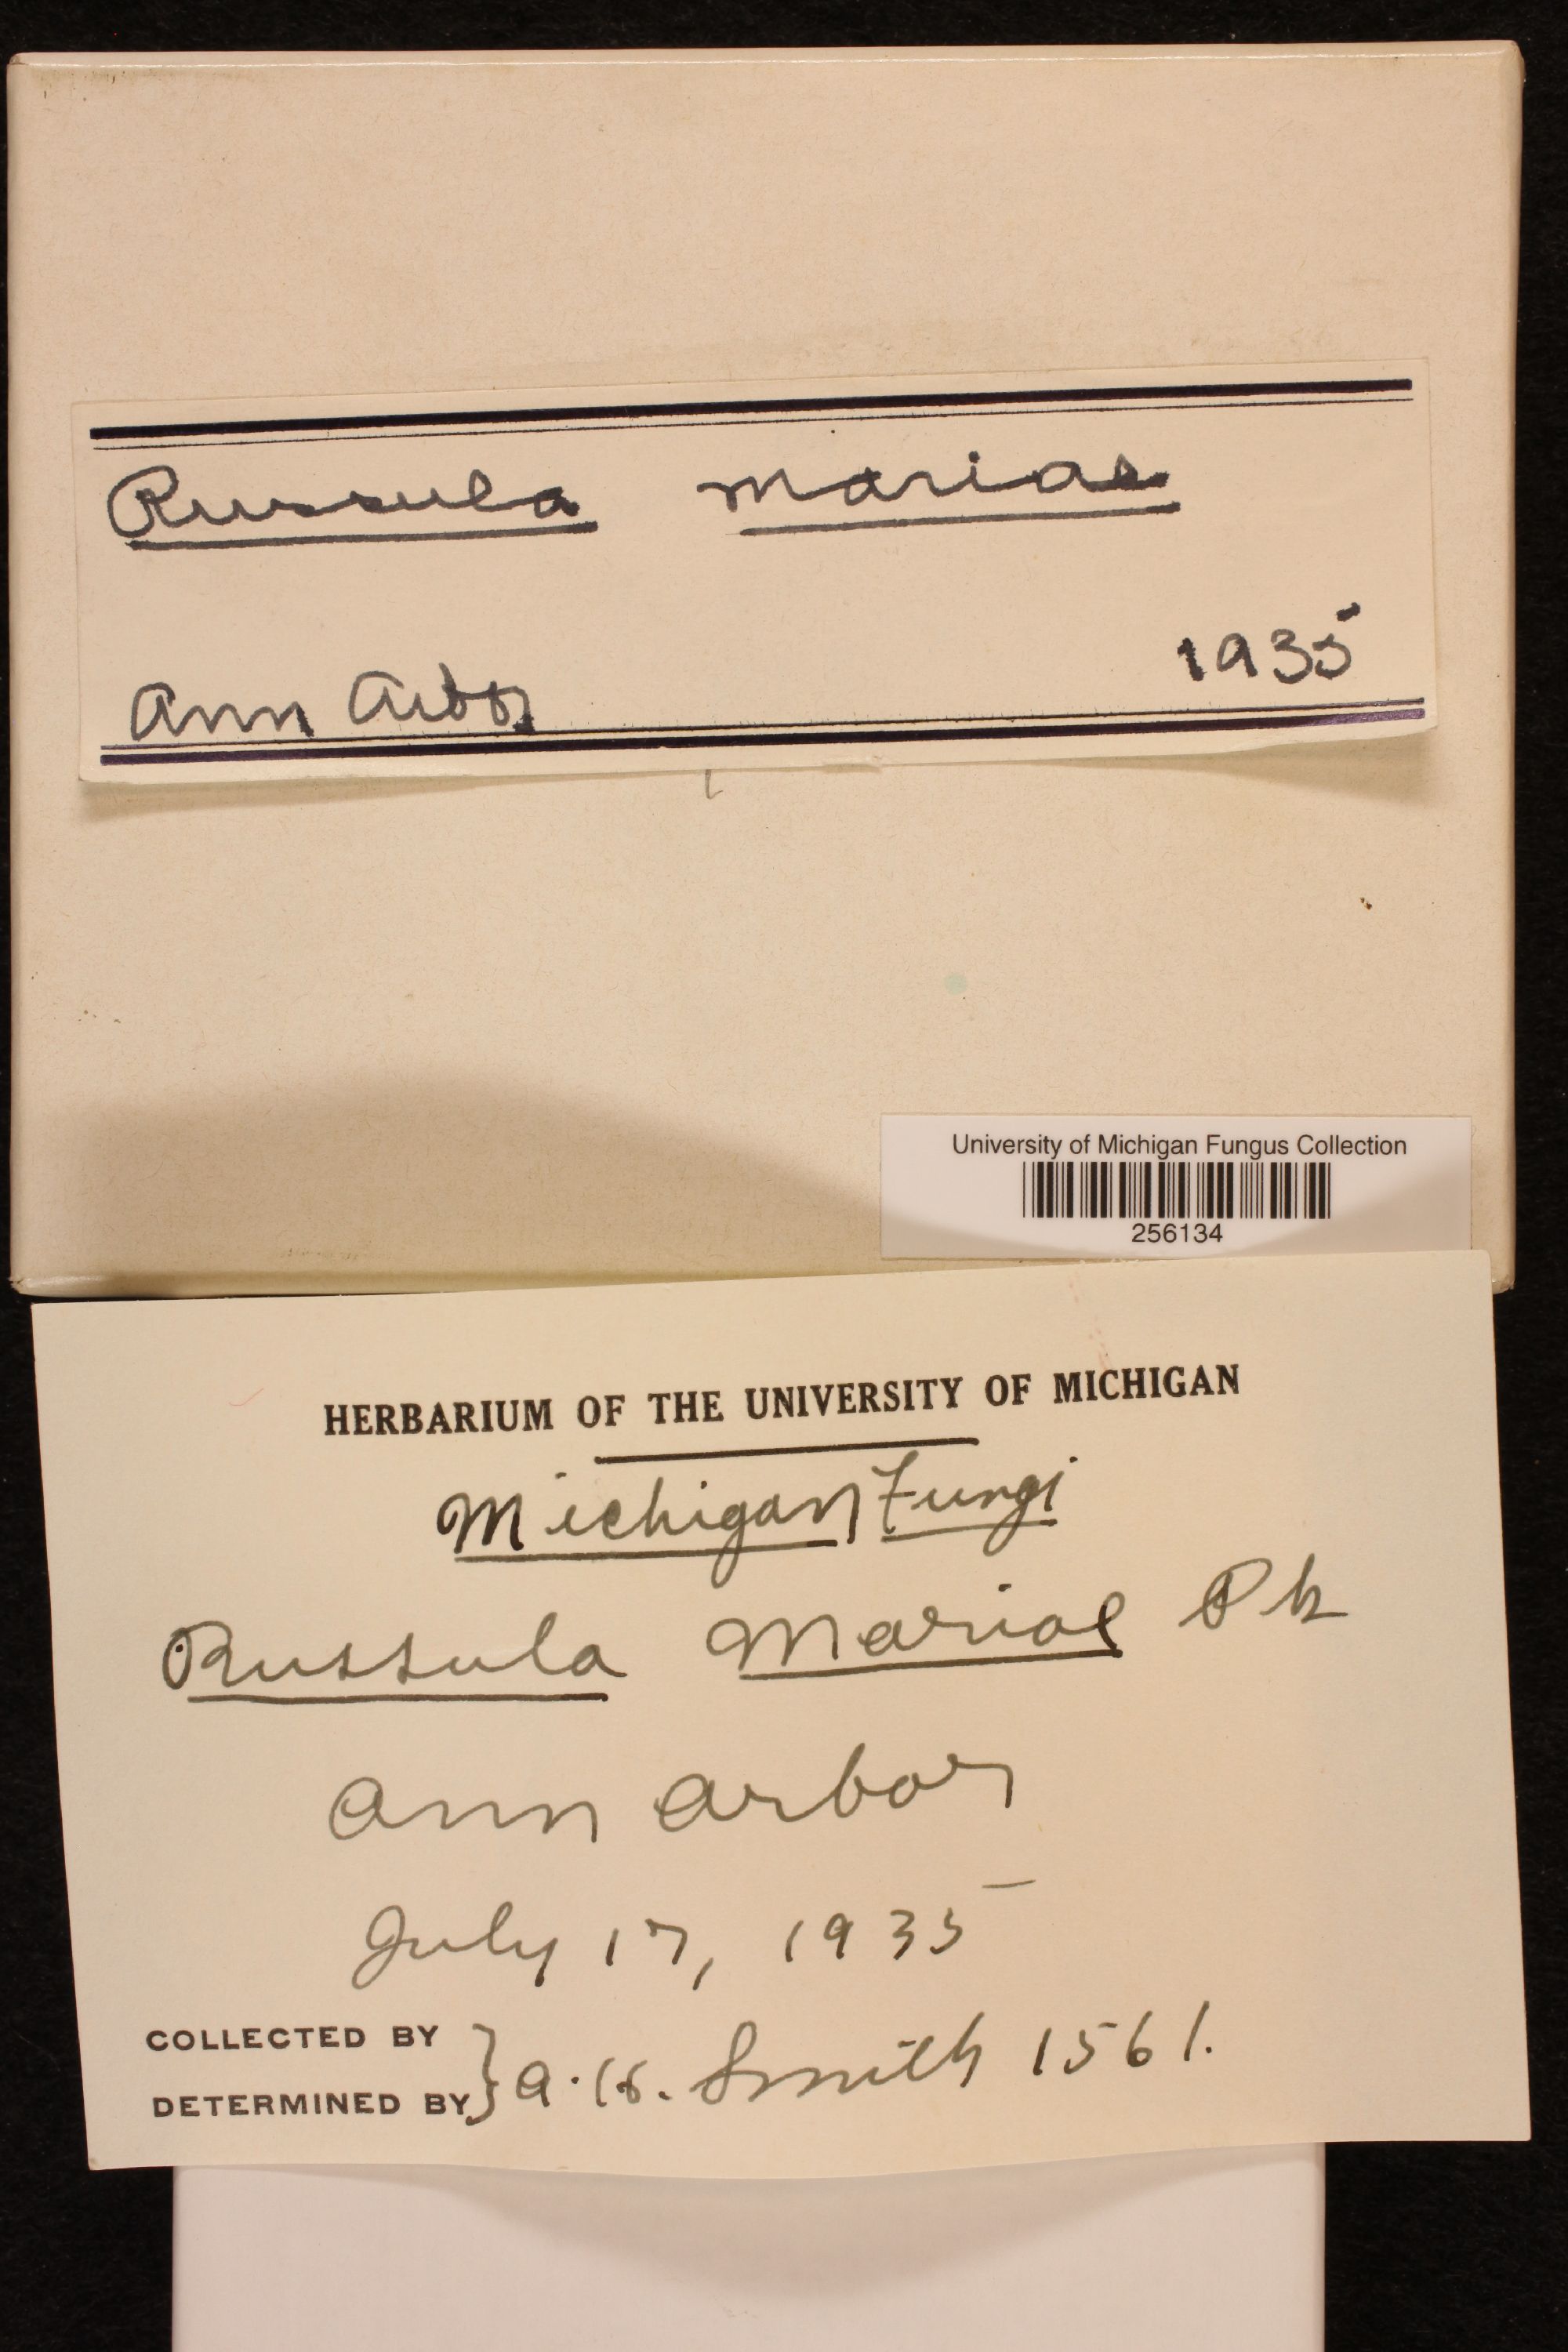 Russula mariae
Ann Arbor 1935
University of Michigan Fungus Collection
256134
HERBARIUM OF THE UNIVERSITY OF MICHIGAN
Michigan Fungi
Russula Mariae Pk
Ann Arbor
July 17, 1935
COLLECTED BY
DETERMINED BY } A. H. Smith 1561.